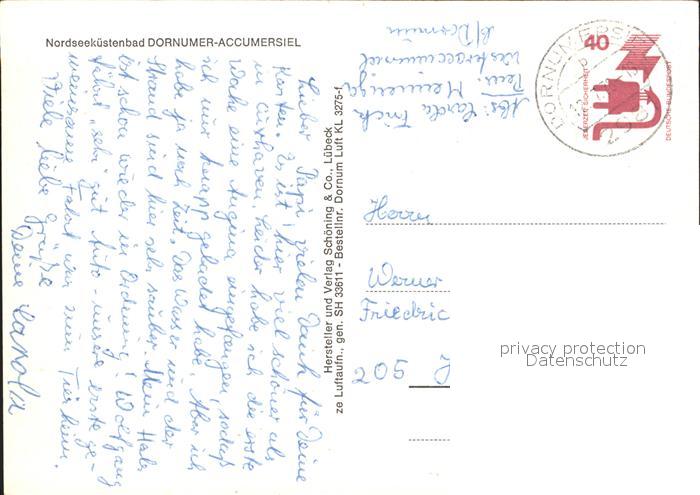 Nordseeküstenbad DORNUMER-ACCUMERSIEL
Lieber Papi, vielen Dank für Deine
Karten. Es ist hier viel schöner als
in Cuxhaven. Leider habe ich die erste
Woche eine Angina eingefangen, sodaß
ich nur knapp gebadet habe. Aber ich
habe ja noch Zeit. Das Wasser und der
Strand sind hier sehr sauber. Mein Hals
ist schon wieder in Ordnung! Wolfgang
fährt "sehr gut" Auto - unsere erste ge-
meinsame Fahrt war zum Tier heim.
Viele liebe Grüße
Deine Carola
Hersteller und Verlag Schöning & Co., Lübeck
ze Luftaufn., gen. SH 33611 - Bestellnr. Dornum Luft KL 3275-f
Abs: Carola Frick
Pens.
Westeraccumersiel
b/ Dornum
DORNUMERSIEL
40
JEDERZEIT SICHERHEIT
DEUTSCHE BUNDESPOST
Herrn
Werner
Friedric
205
privacy protection
Datenschutz